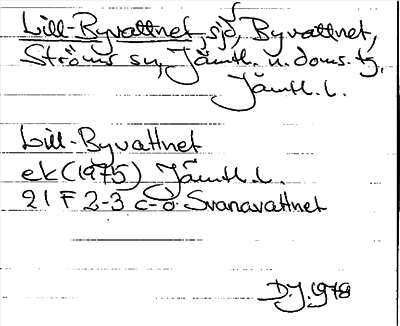 Lill-Byvattnet, sjö, Byvattnet,
Ströms sn, Jämtl. n. doms. tg,
Jämtl. l.
Lill-Byvattnet
ek (1975) Jämtl. l.
21 F 2-3 c-d. Svanavattnet
D.J. 1978